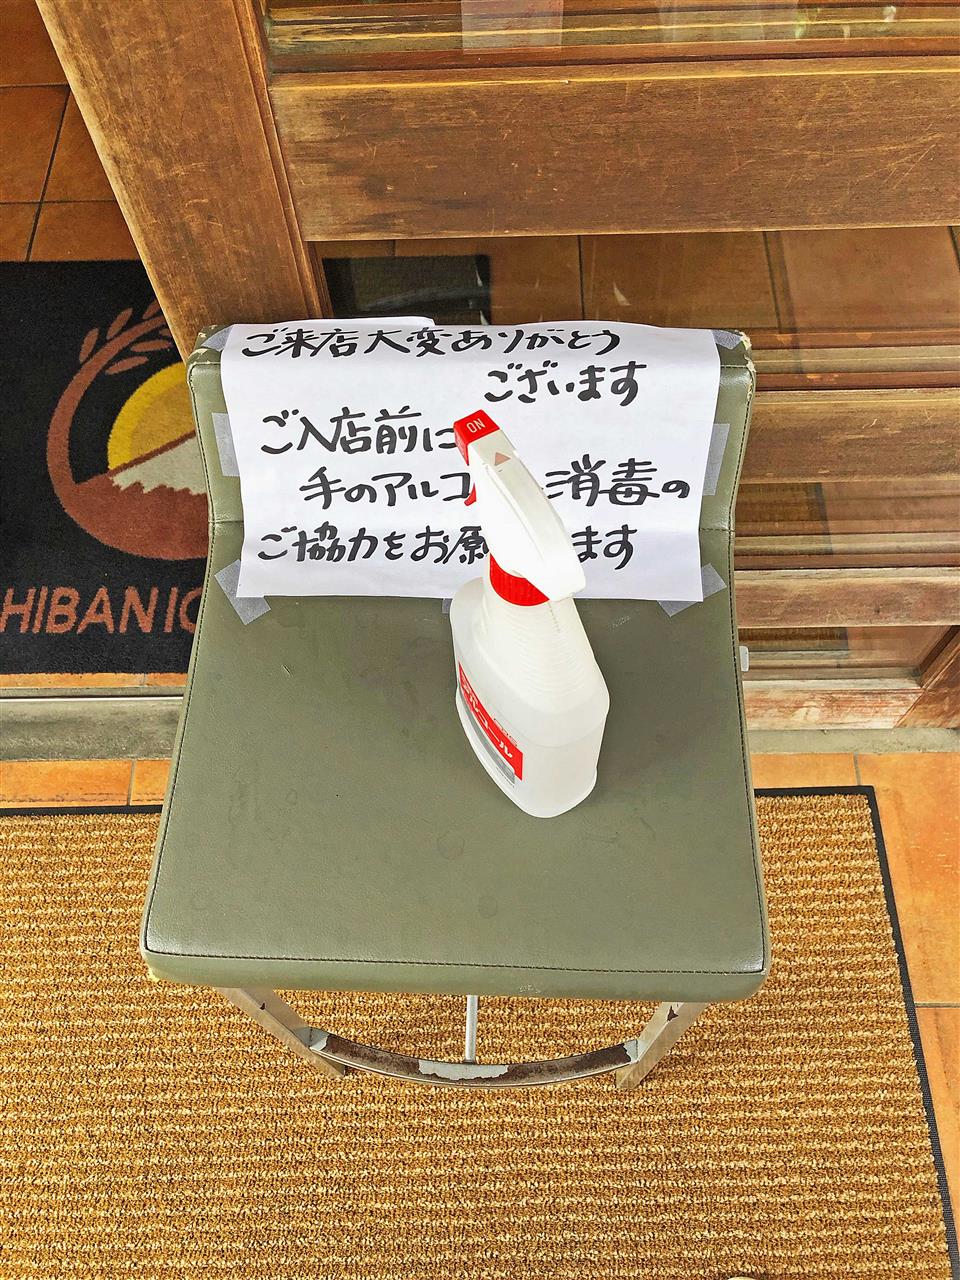 ご来店大変ありがとう
ございます
ご入店前に
手のアルコ 消毒の
ご協力をお願 ます
ON
アルコール
HIBANI